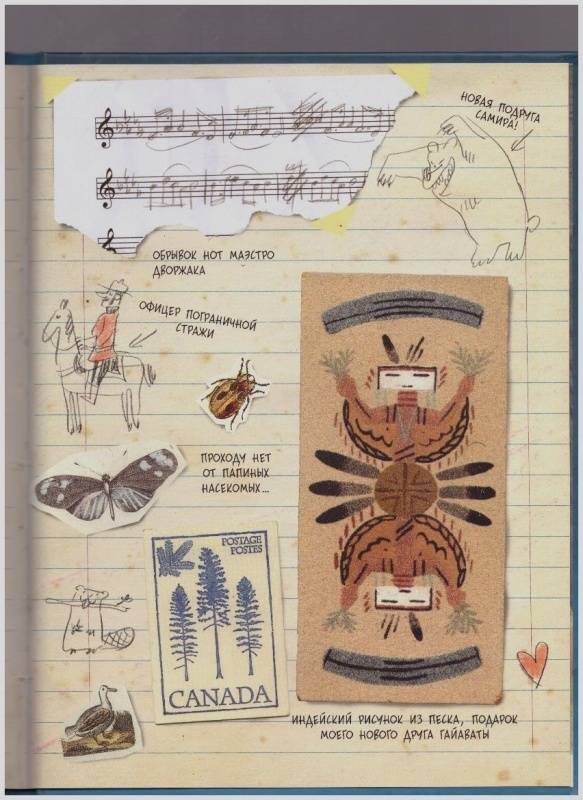 НОВАЯ ПОДРУГА
САМИРА!
ОБРЫВОК НОТ МАЭСТРО
ДВОРЖАКА
ОФИЦЕР ПОГРАНИЧНОЙ
СТРАЖИ
ПРОХОДУ НЕТ
ОТ ПАПИНЫХ
НАСЕКОМЫХ...
POSTAGE
POSTES
CANADA
ИНДЕЙСКИЙ РИСУНОК ИЗ ПЕСКА, ПОДАРОК
МОЕГО НОВОГО ДРУГА ГАЙАВАТЫ